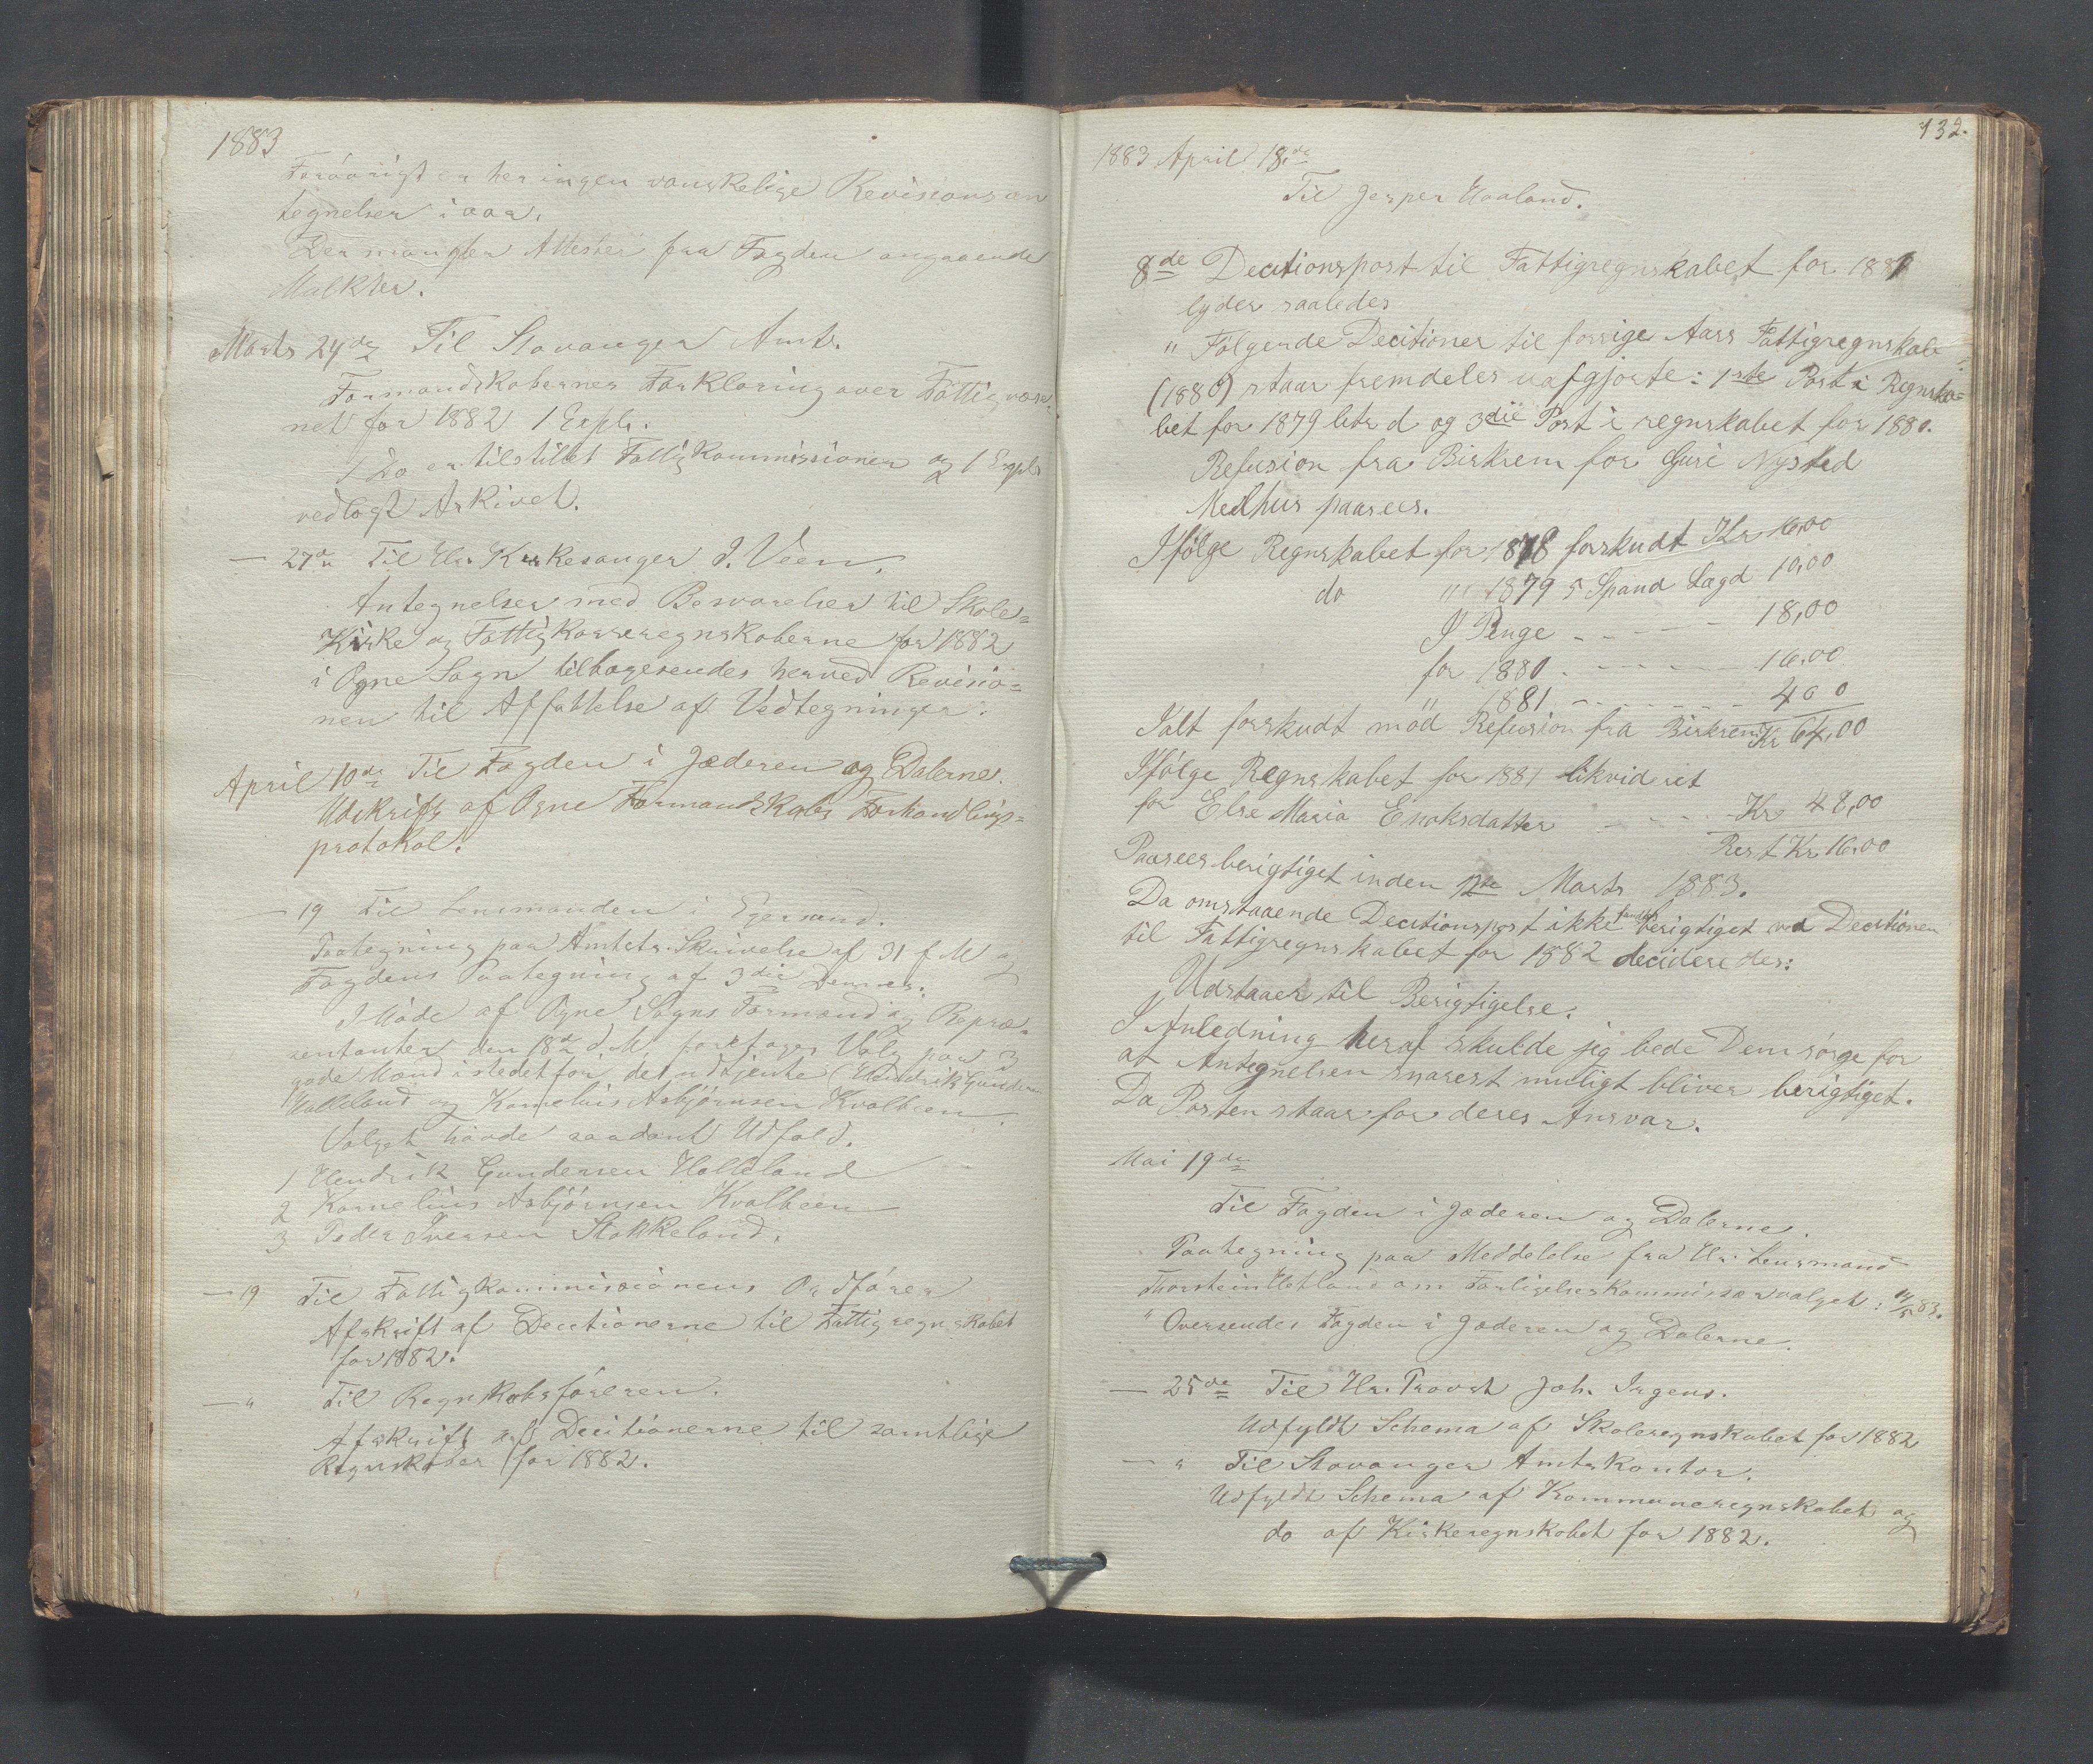 1883
Forövrigt er her ingen vanskelige Revisionsan
tegnelser i aar.
Der mangler Attester fra Fogden angaaende
Mulkter.
Marts 24de Til Stavanger Amt.
Formandskabernes Forklaring over Fattigvæse-
net for 1882 1 Expl.
1 Do er tilstillet Fattigkommissionen og 1 Expl
vedlagt Arkivet.
— 27de Til Hr. Kirkesanger J. Veen.
Antegnelser med Besvarelser til Skole=
Kirke og Fattigkasseregnskaberne for 1882
i Ogne Sogn tilbagesendes herved Revisio=
nen til Affattelse af Vedtegninger.
April 10de Til Fogden i Jæderen og Dalerne.
Udskrift af Ogne Formandskabs Forhandlings=
protokol.
— 19 Til Lensmanden i Egersund.
Paategning paa Amtets Skrivelse af 31 f M og
Fogdens Paategning af 3die Dennes.
I Möde af Ogne Sogns Formænd og Repræ=
sentanter den 18de d. M. foretages Valg paa 3
gode Mænd istedetfor de udtjente (Hendrik Gundersen
Halleland og Kornelius Asbjörnsen Kvalbeen.
Valget havde saadant Udfald.
1 Hendrik Gundersen Halleland
2 Kornelius Asbjörnsen Kvalbeen
3 Peder Iversen Stokkeland.
— 19 Til Fattigkommissionens Ordförer
Afskrift af Decitionerne til Fattigregnskabet
for 1882.
— " Til Regnskabsföreren.
Afskrift af Decitionerne til samtlige
Regnskaber for 1882.
132.
1883 April 18de
Til Jesper Haaland.
8de Decitionspost til Fattigregnskabet for 1881
lyder saaledes
" Fölgende Decitioner til forrige Aars Fattigregnskab
(1880) staar fremdeles uafgjorte: 1ste Post i Regnska=
bet for 1879 litr d og 3die Post i regnskabet for 1880.
Refusion fra Birkrem for Guri Nysted
Medhus paasees.
Ifölge Regnskabet for 1878 forskudt Kr 16,00
do " 1879 5 Spand Lægd 10,00
I Penge - - - - - 18,00
for 1880 - - - - - 16,00
" 1881 - - - - - 4 00
Ialt forskudt mod Refusion fra Birkrem Kr 64,00
Ifölge Regnskabet for 1881 likvideret
for Else Maria Enoksdatter - - - - Kr 48,00
Rest Kr 16,00
Paasees berigtiget inden 12te Marts 1883.
Da omstaaende Decitionspost ikke fandtes berigtiget ved Decitionen
til Fattigregnskabet for 1882 decideredes:
Udstaaer til Berigtigelse.
I Anledning heraf skulde jeg bede Dem sörge for
at Antegnelsen snarest muligt bliver berigtiget.
Da Posten staar for deres Ansvar.
Mai 19de
Til Fogden i Jæderen og Dalerne.
Paategning paa Meddelelse fra Hr. Lensmand
Thorstein Hetland om Forligelseskommissærvalget: 14/5 83.
" Oversendes Fogden i Jæderen og Dalerne.
— 25de Til Hr. Provst Joh. Irgens.
Udfyldt Schema af Skoleregnskabet for 1882
— " Til Stavanger Amtskontor.
Udfyldt Schema af Kommuneregnskabet og
do af Kirkeregnskabet for 1882.